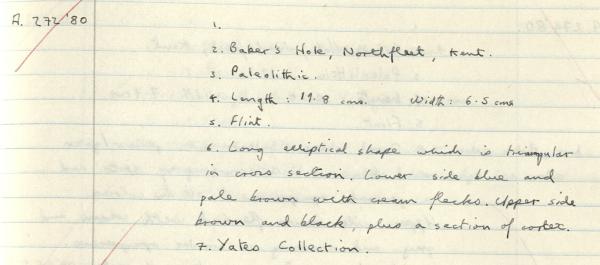 A. 272 '80
1.
2. Baker's Hole, Northfleet, Kent.
3. Paleolithic.
4. Length: 19.8 cms. Width: 6.5 cms
5. Flint.
6. Long elliptical shape which is triangular
in cross section. Lower side blue and
pale brown with cream flecks. Upper side
brown and black, plus a section of cortex.
7. Yates Collection.